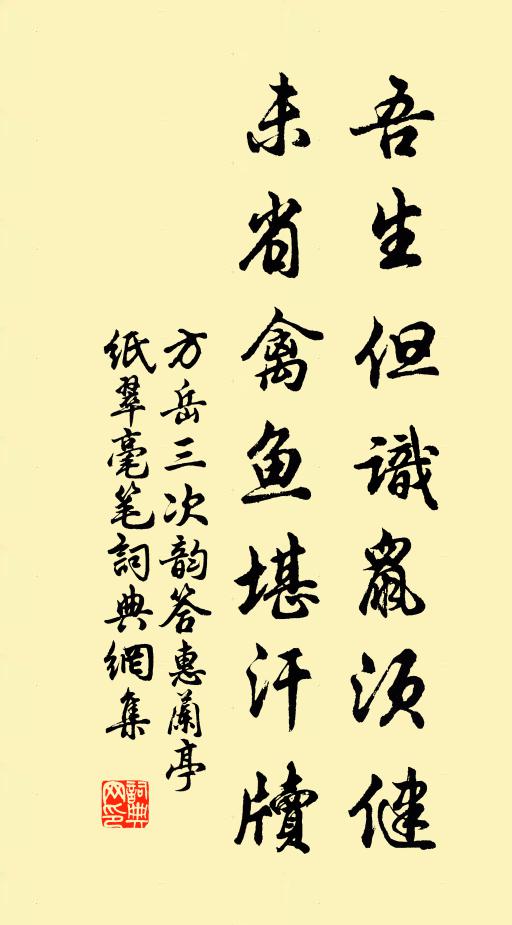 吾生但識鼠須健
未省禽魚堪汗牘
方岳三次韵答惠蘭亭
紙翠毫笔詞典網集
詞典网印